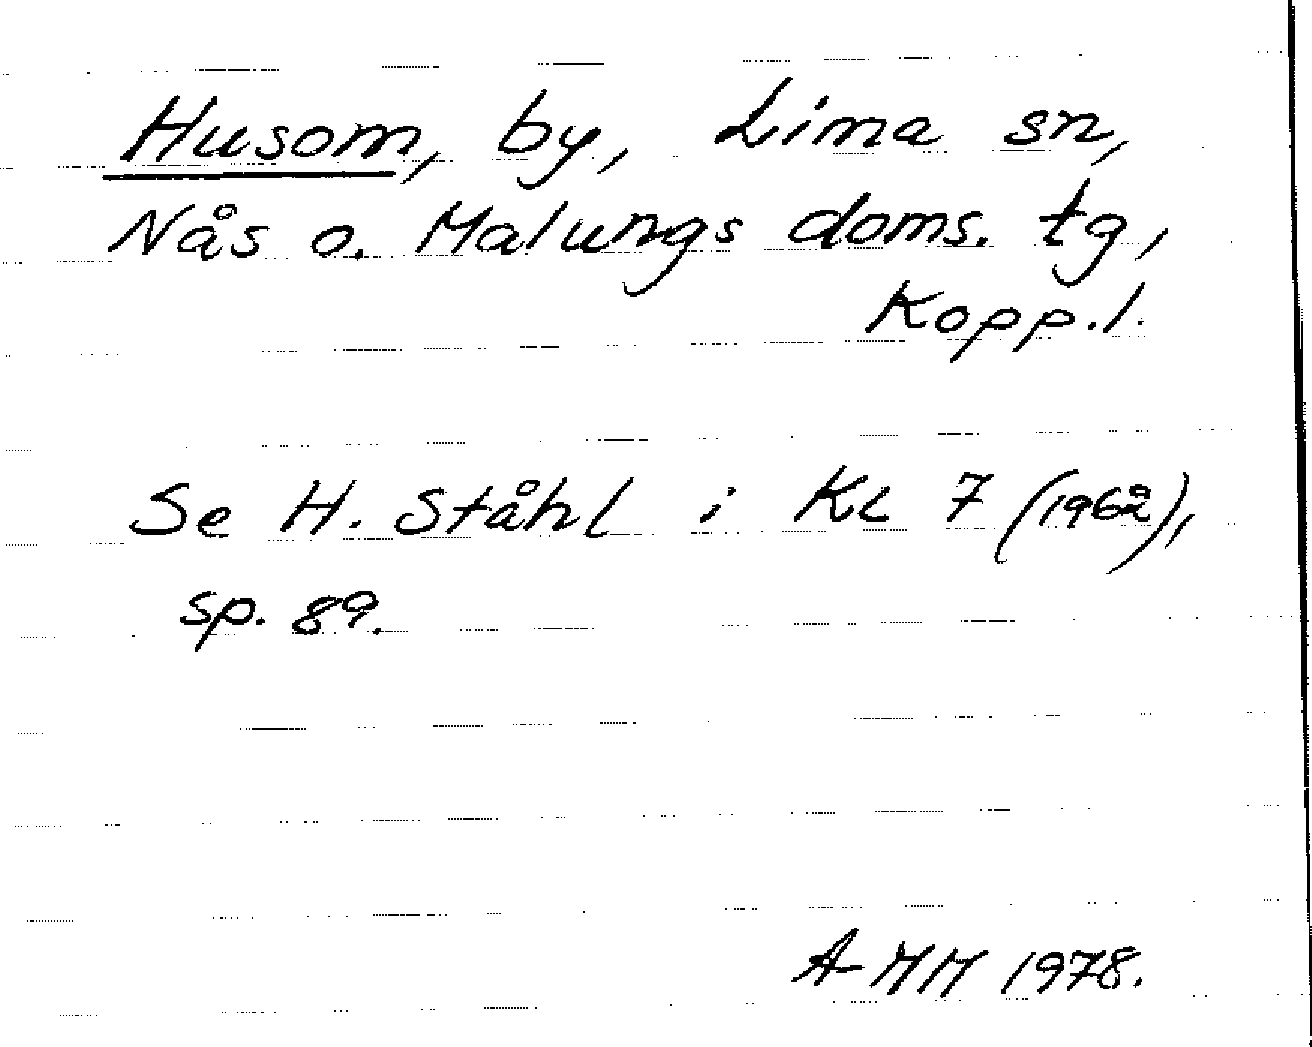 Husom, by, Lima sn,
Nås o. Malungs doms. tg,
Kopp.l.
Se H. Ståhl i KL 7 (1962),
sp. 89.
A-MM 1978.